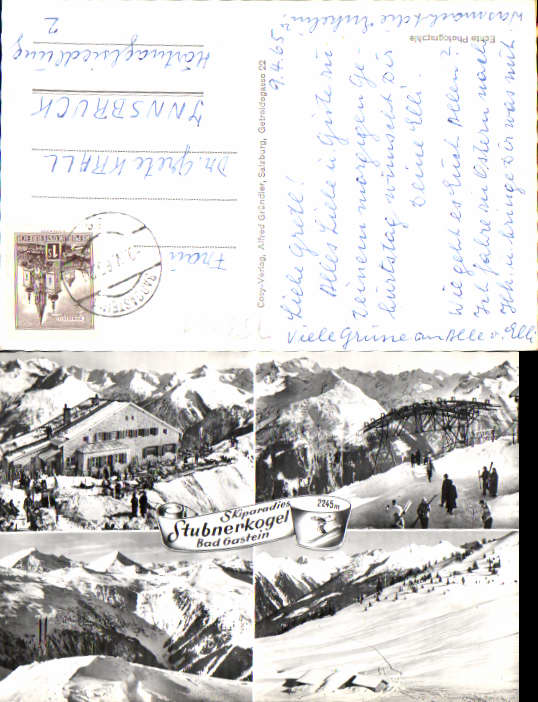 9.4.65
Liebe Grete!
Alles Liebe u. Gute zu
Deinem morgigen Ge-
burtstag wünscht Dir
Deine Elli.
Wie geht es Euch Allen?
Ich fahre zu Ostern nach
Ihr was mit.
Was macht die
Viele Grüsse an Alle v. Elli
Echte Photographie
Cosy-Verlag, Alfred Gründler, Salzburg, Getreidegasse 22
Frau
Dr. Grete KRALL
INNSBRUCK
2
REPUBLIK ÖSTERREICH
Skiparadies
Stubnerkogel
Bad Gastein
2245m